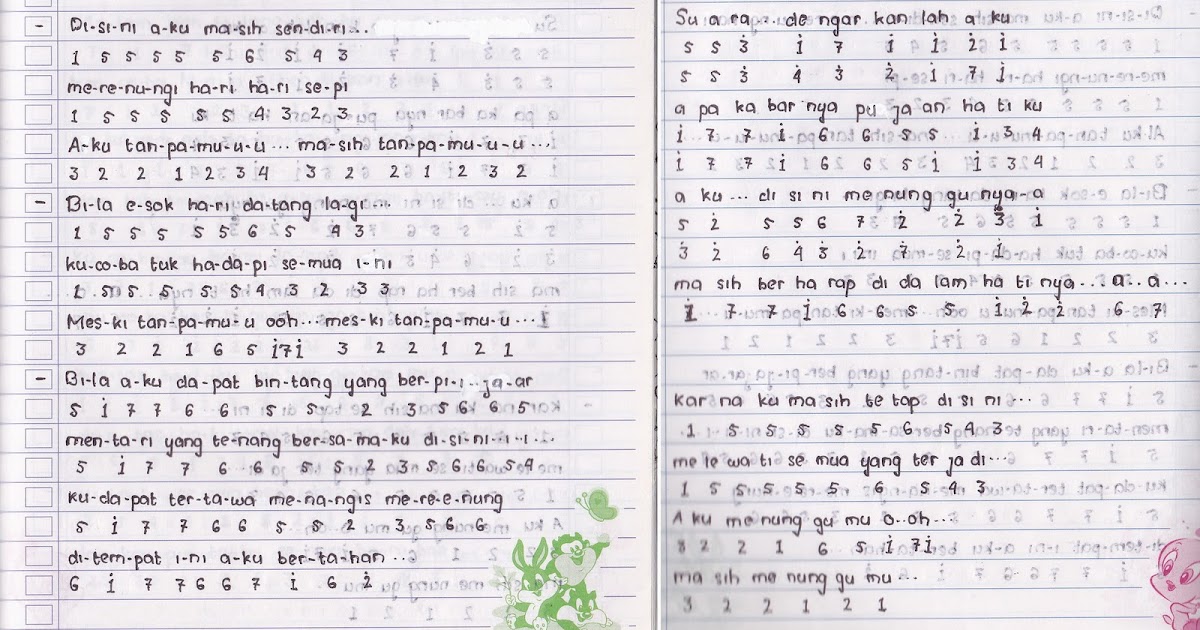 - Di-si-ni a-ku ma-sih sen-di-ri...
1 5 5 5 5 5 6 5 4 3
me-re-nu-ngi ha-ri ha-ri se-pi
1 5 5 5 5 5 4 3 2 3
A-ku tan-pa-mu-u-u... ma-sih tan-pa-mu-u-u...
3 2 2 1 2 3 4 3 2 2 1 2 3 2
- Bi-la e-sok ha-ri da-tang la-gi...
1 5 5 5 5 5 6 5 4 3
ku-co-ba tuk ha-da-pi se-mua i-ni
1 5 5 5 5 5 4 3 2 3 3
Mes-ki tan-pa-mu-u ooh... mes-ki tan-pa-mu-u...
3 2 2 1 6 5 i̇ 7 i̇ 3 2 2 1 2 1
- Bi-la a-ku da-pat bin-tang yang ber-pi-i..ja-ar
5 i̇ 7 7 6 6 5 5 2 3 5 6 6 5
men-ta-ri yang te-nang ber-sa-ma-ku di-si-ni-i-i...
5 i̇ 7 7 6 6 5 5 2 3 5 6 6 5 4
ku-da-pat ter-ta-wa me-na-ngis me-re-e-nung
5 i̇ 7 7 6 6 5 5 2 3 5 6 6
di-tem-pat i-ni a-ku ber-ta-han...
6 i̇ 7 7 6 6 7 i̇ 6 2̇
Su a ra... de ngar kan lah a ku
5 5 3̇ i̇ 7 i̇ i̇ 2̇ i̇
5 5 3̇ 4̇ 3̇ 2̇ i̇ 7 i̇
a pa ka bar nya pu ja an ha ti ku
i̇ 7 7 i̇ 6 6 5 5 i̇ 3̇ 4̇
i̇ 7 7 i̇ 6 6 5 i̇ i̇ 3̇ 4̇
a ku... di si ni me nung gu nya-a
5 2̇ 5 5 6 7 2̇ 2̇ 3̇ i̇
3̇ 2̇ 6 4̇ 3̇ i̇ 2̇ 7 2̇ i̇
ma sih ber ha rap di da lam ha ti nya... a..a...
i̇ 7 7 i̇ 6 6 5 5 i̇ 2̇ 2̇ 6 7
kar na ku ma sih te tap di si ni...
1 5 5 5 5 5 6 5 4 3
me le wa ti se mua yang ter ja di...
1 5 5 5 5 6 5 4 3
A ku me nung gu mu o..oh...
3 2 2 1 6 5 i̇ 7 i̇
ma sih me nung gu mu...
3 2 2 1 2 1